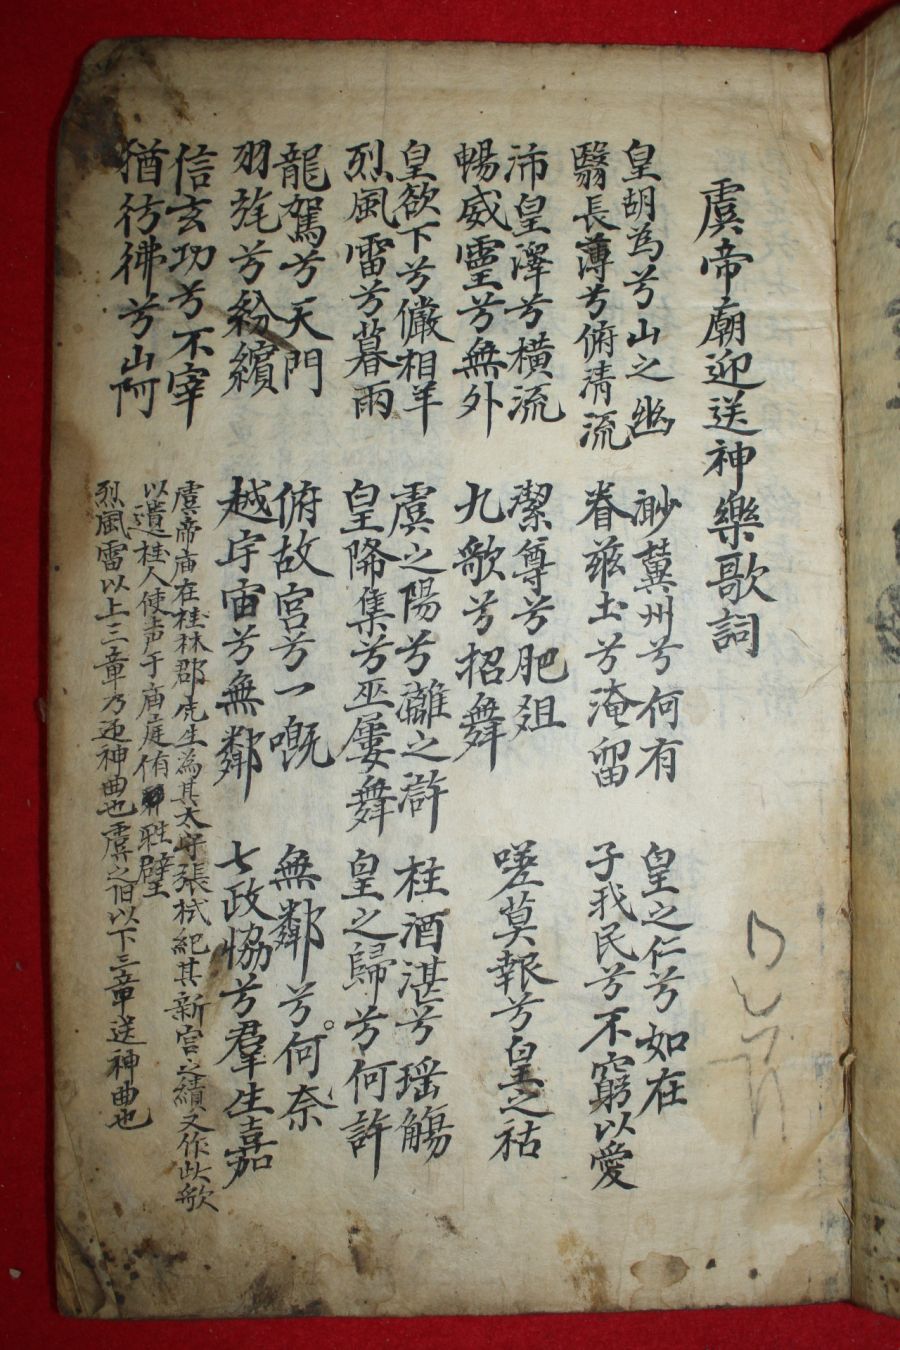 虞帝廟迎送神樂歌詞
皇胡為兮山之幽
翳長薄兮俯清流
渺冀州兮何有
眷玆土兮淹留
皇之仁兮如在
子我民兮不窮以愛
沛皇澤兮橫流
暢威靈兮無外
潔尊兮肥俎
九歌兮招舞
嗟莫報兮皇之祜
皇欲下兮儼相羊
烈風雷兮暮雨
虞之陽兮離之滸
皇降集兮巫屢舞
桂酒湛兮瑶觴
皇之歸兮何許
龍駕兮天門
羽旄兮紛繽
俯故宮兮一嘅
越宇宙兮無鄰
無鄰兮何奈
七政協兮羣生嘉
信玄功兮不宰
猶彷彿兮山阿
虞帝庙在桂林郡先生為其太守張栻紀其新宮之績又作此歌
以遺桂人使声于庙庭侑牲璧
烈風雷以上三章乃迎神曲也虞之阳以下三章送神曲也